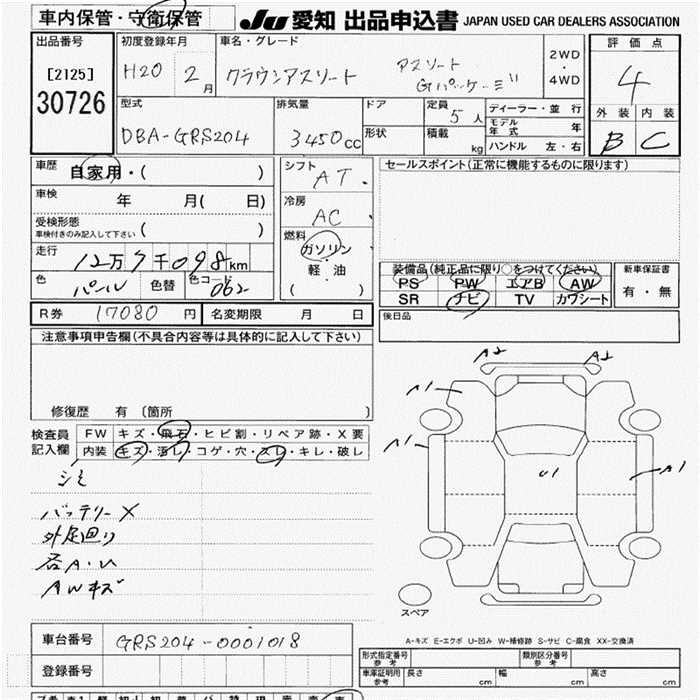 車内保管・守衛保管 JU 愛知 出品申込書 JAPAN USED CAR DEALERS ASSOCIATION
出品番号 [2125] 30726
初度登録年月 H20 2月
車名・グレード クラウンアスリート アスリート Gパッケージ
2WD・4WD
評価点 4
外装 B 内装 C
型式 DBA-GRS204
排気量 3450cc
ドア 形状
定員 5人 積載 kg
ディーラー・並行
モデル年式 年
ハンドル 左・右
車歴 自家用・( )
車検 年 月( 日)
受検形態 車検付きのみ記入して下さい ( )
走行 12万7千098km
色 パール 色替 色コード 062
シフト AT
冷房 AC
燃料 ガソリン・軽油 ( )
セールスポイント(正常に機能するものに限ります)
装備品(純正品に限り○をつけてください)
PS PW エアB AW
SR ナビ TV カワシート
新車保証書 有・無
R券 17080円 名変期限 月 日
後日品
注意事項申告欄(不具合内容等は具体的に記入して下さい)
修復歴 有 〔箇所 〕
検査員記入欄
FW キズ・飛石・ヒビ割・リペア跡・X要
内装 キズ・汚レ・コゲ・穴・スレ・キレ・破レ
シミ
バッテリーX
外足回り
各A・U
AWキズ
A2 A2
A1
A1
U1
A1
スペア
A-キズ E-エクボ U-凹み W-補修跡 S-サビ C-腐食 XX-交換済
車台番号 GRS204-0001018
登録番号
形式指定番号 参考 類別区分番号 参考
車庫証明用 参考 長さ cm 幅 cm 高さ cm